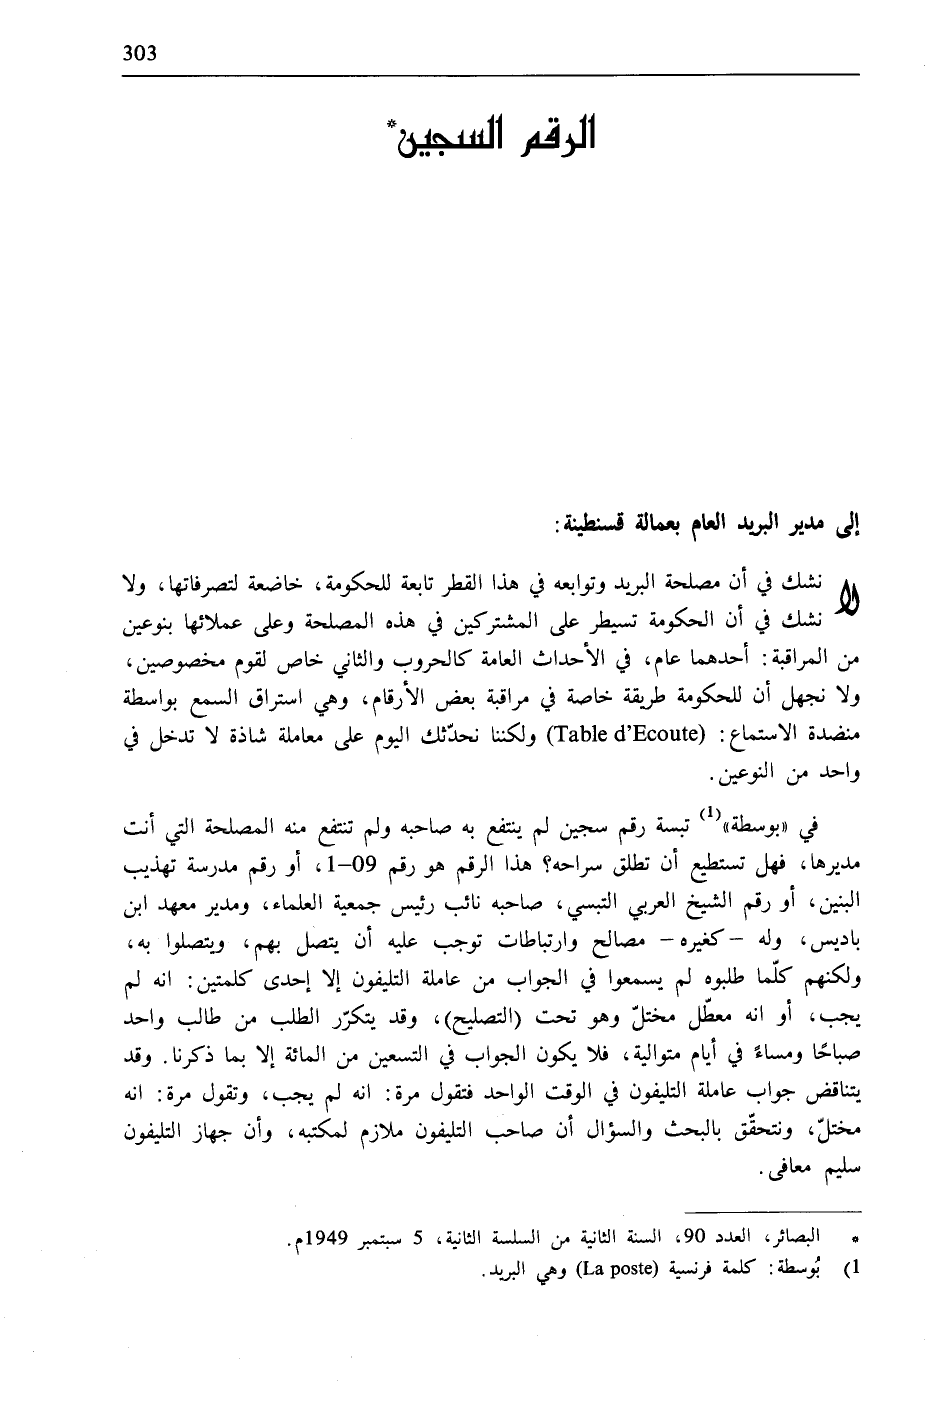 303
الرقم السجين*
إلى مدير البريد العام بعمالة قسنطينة:
لا نشك في أن مصلحة البريد وتوابعه في هذا القطر تابعة للحكومة، خاضعة لتصرفاتها، ولا
نشك في أن الحكومة تسيطر على المشتركين في هذه المصلحة وعلى عملائها بنوعين
من المراقبة: أحدهما عام، في الأحداث العامة كالحروب والثاني خاص لقوم مخصوصين،
ولا نجهل أن للحكومة طريقة خاصة في مراقبة بعض الأرقام، وهي استراق السمع بواسطة
منضدة الاستماع: (Table d'Ecoute) ولكننا نحدّثك اليوم على معاملة شاذة لا تدخل في
واحد من النوعين.
في «بوسطة»(1) تبسة رقم سجين لم ينتفع به صاحبه ولم تنتفع منه المصلحة التي أنت
مديرها، فهل تستطيع أن تطلق سراحه؟ هذا الرقم هو رقم 09–1، أو رقم مدرسة تهذيب
البنين، أو رقم الشيخ العربي التبسي، صاحبه نائب رئيس جمعية العلماء، ومدير معهد ابن
باديس، وله –كغيره– مصالح وارتباطات توجب عليه أن يتصل بهم، ويتصلوا به،
ولكنهم كلّما طلبوه لم يسمعوا في الجواب من عاملة التليفون إلا إحدى كلمتين: انه لم
يجب، أو انه معطّل مختلّ وهو تحت (التصليح)، وقد يتكرّر الطلب من طالب واحد
صباحًا ومساءً في أيام متوالية، فلا يكون الجواب في التسعين من المائة إلا بما ذكرنا. وقد
يتناقض جواب عاملة التليفون في الوقت الواحد فتقول مرة: انه لم يجب، وتقول مرة: انه
مختلّ، ونتحقّق بالبحث والسؤال أن صاحب التليفون ملازم لمكتبه، وأن جهاز التليفون
سليم معافى.
* البصائر، العدد 90، السنة الثانية من السلسة الثانية، 5 سبتمبر 1949م.
1) بُوسطة: كلمة فرنسية (La poste) وهي البريد.